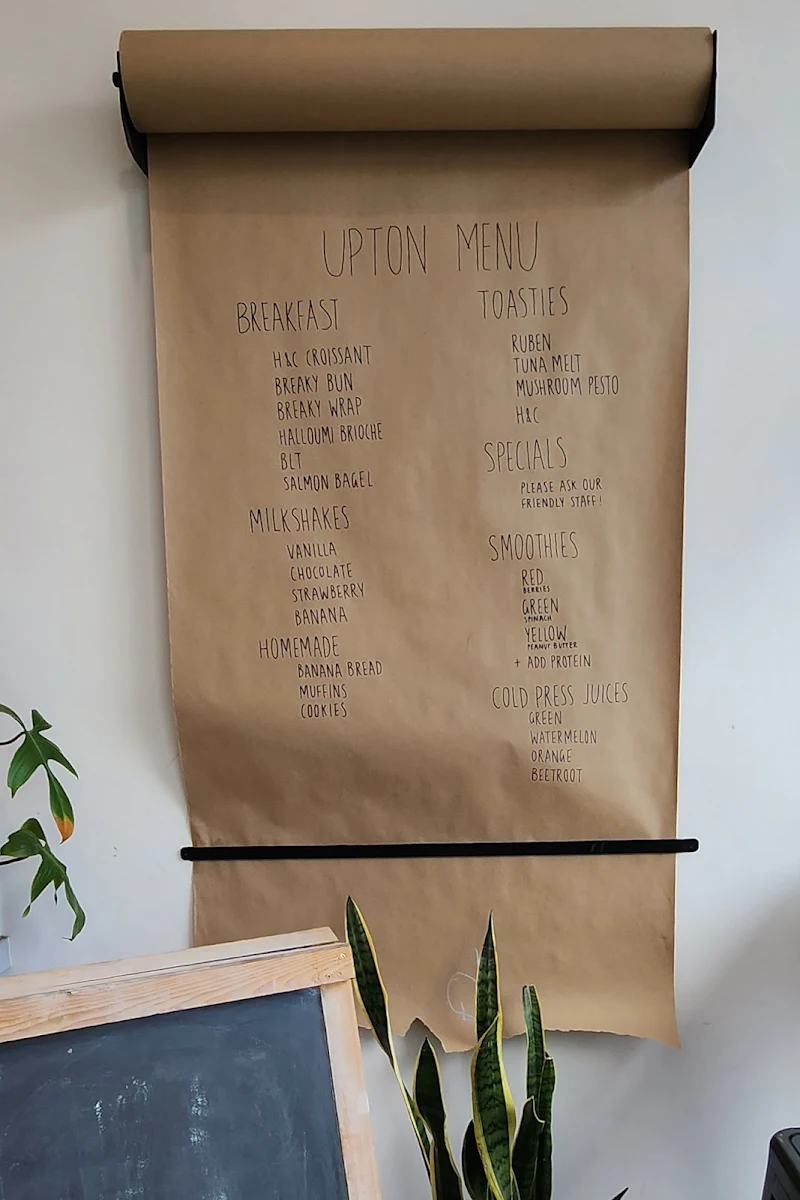 UPTON MENU
BREAKFAST
H&C CROISSANT
BREAKY BUN
BREAKY WRAP
HALLOUMI BRIOCHE
BLT
SALMON BAGEL
MILKSHAKES
VANILLA
CHOCOLATE
STRAWBERRY
BANANA
HOMEMADE
BANANA BREAD
MUFFINS
COOKIES
TOASTIES
RUBEN
TUNA MELT
MUSHROOM PESTO
H&C
SPECIALS
PLEASE ASK OUR
FRIENDLY STAFF!
SMOOTHIES
RED
BERRIES
GREEN
SPINACH
YELLOW
PEANUT BUTTER
+ ADD PROTEIN
COLD PRESS JUICES
GREEN
WATERMELON
ORANGE
BEETROOT